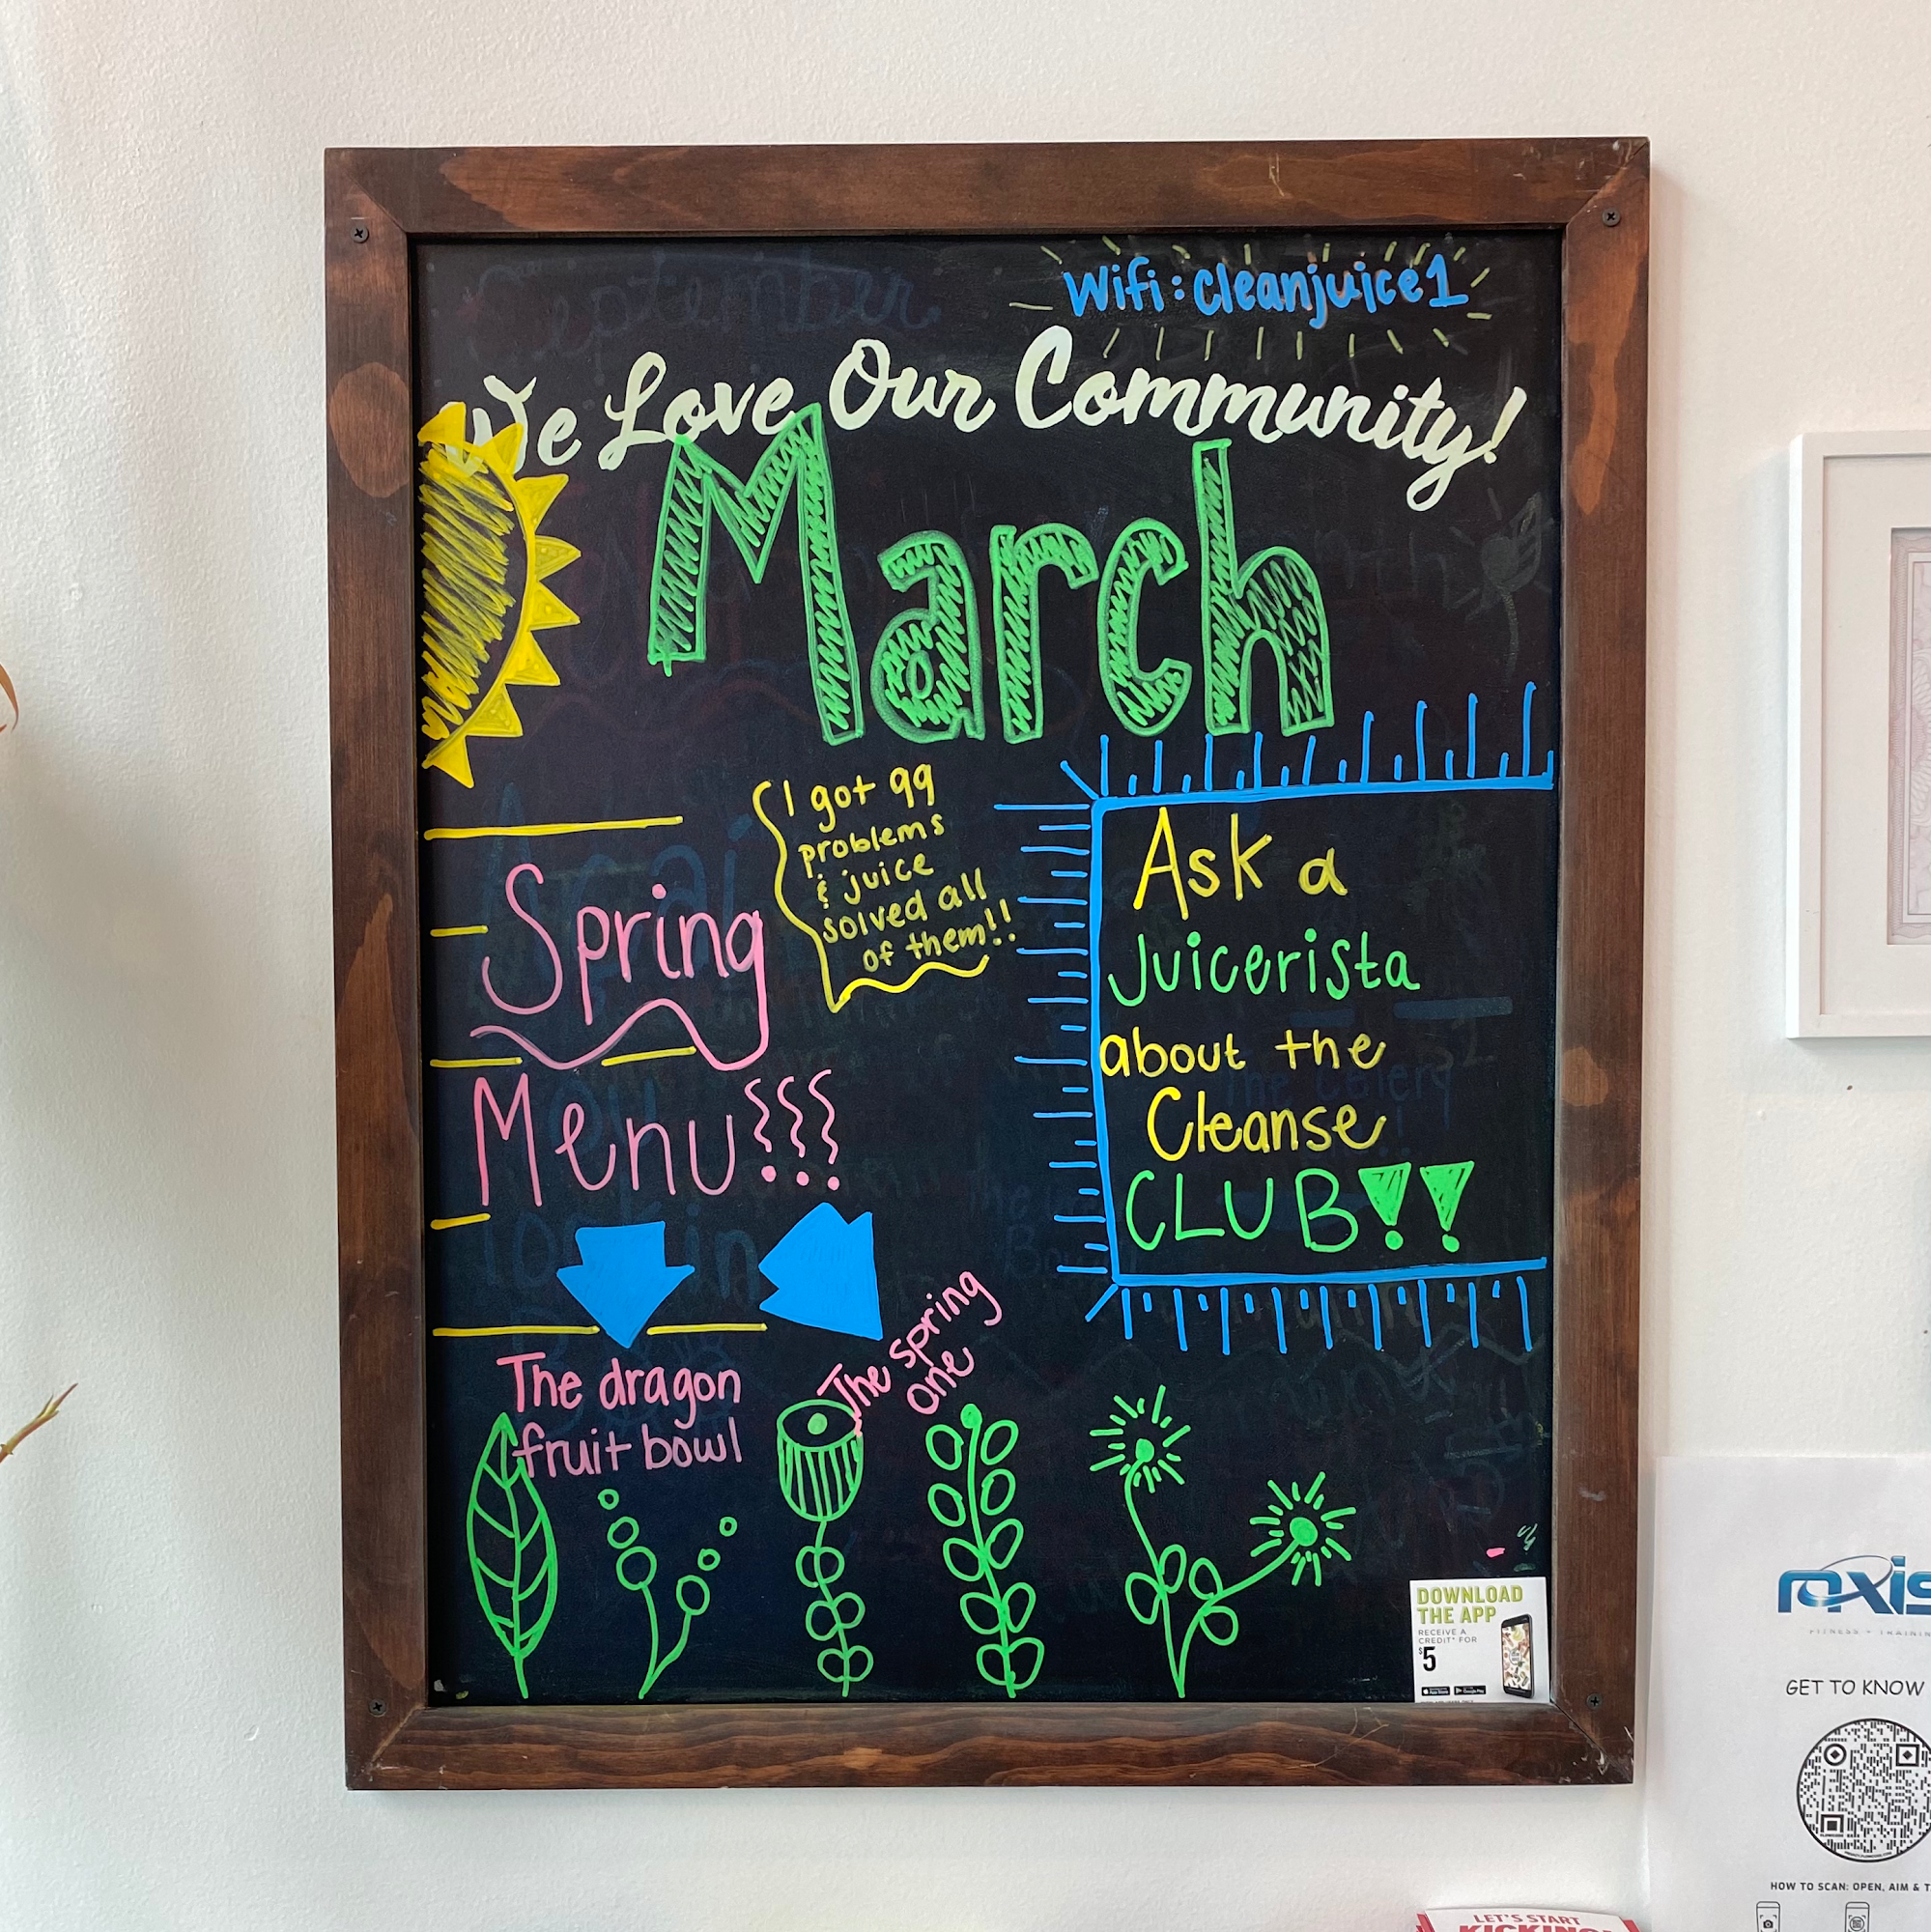 Wifi: cleanjuice1
We Love Our Community!
March
I got 99
problems
& juice
solved all
of them!!
Spring
Menu!!!
The dragon
fruit bowl
The spring
one
Ask a
Juicerista
about the
Cleanse
CLUB!!
DOWNLOAD
THE APP
RECEIVE A
CREDIT* FOR
$5
September
GET TO KNOW
HOW TO SCAN: OPEN, AIM & T
LET'S START
KICKING!